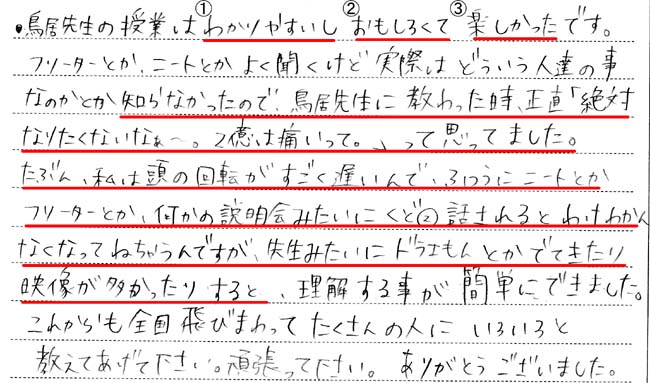 ① ② ③
・鳥居先生の授業はわかりやすいし おもしろくて 楽しかったです。
フリーターとか、ニートとか よく聞くけど 実際は どういう人達の事
なのかとか知らなかったので、鳥居先生に 教わった時、正直「絶対
なりたくないなぁ〜。2億は痛いって。」って思ってました。
たぶん、私は頭の回転がすごく遅いんで、ふつうにニートとか
フリーターとか、何かの説明会みたいにくど②話されるとわけわかん
なくなってねちゃうんですが、先生みたいにドラエもん とかでてきたり
映像が多かったりすると、理解する事が簡単にできました。
これからも全国飛びまわって たくさんの人に いろいろと
教えてあげて下さい。頑張って下さい。 ありがとうございました。